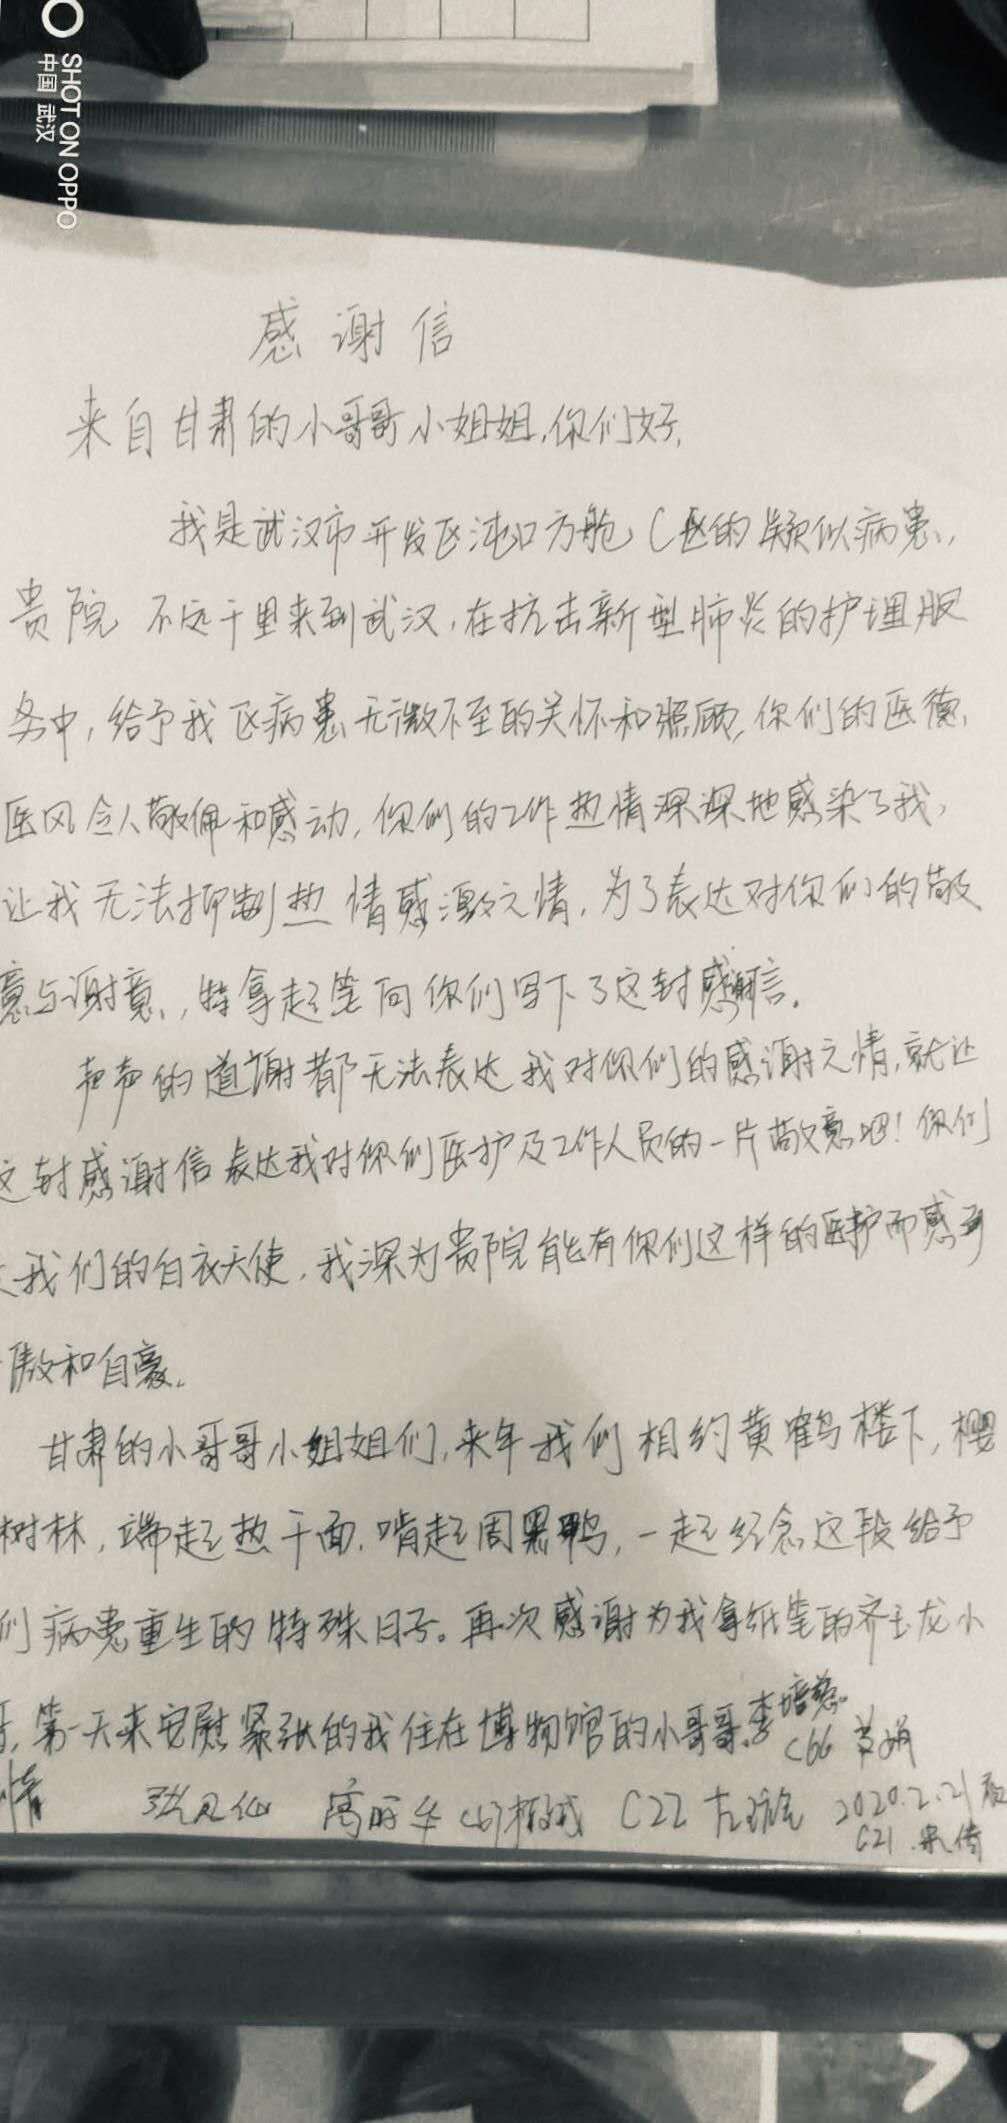 SHOT ON OPPO
中国 武汉
感谢信
来自甘肃的小哥哥小姐姐,你们好,
我是武汉市开发区沌口方舱C区的疑似病患,
贵院不远千里来到武汉,在抗击新型肺炎的护理服
务中,给予我区病患无微不至的关怀和照顾,你们的医德,
医风令人敬佩和感动,你们的工作热情深深地感染了我,
让我无法抑制热情感激之情,为了表达对你们的敬
意与谢意,特拿起笔向你们写下了这封感谢信。
声声的道谢都无法表达我对你们的感谢之情,就让
这封感谢信表达我对你们医护及工作人员的一片敬意吧!你们
我们的白衣天使,我深为贵院能有你们这样的医护而感到
傲和自豪。
甘肃的小哥哥小姐姐们,来年我们相约黄鹤楼下,樱
树林,端起热干面,啃起周黑鸭,一起纪念这段给予
们病患重生的特殊日子。再次感谢为我拿纸笔的齐玉龙小
第一天来安慰紧张的我住在博物馆的小哥哥李培
C66
C67 C22 2020.2.21
C21